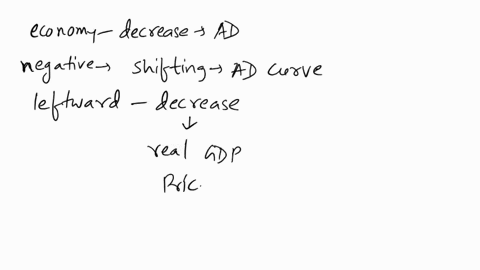 economy – decrease → AD
negative → shifting → AD curve
leftward – decrease
↓
real GDP
Pric.